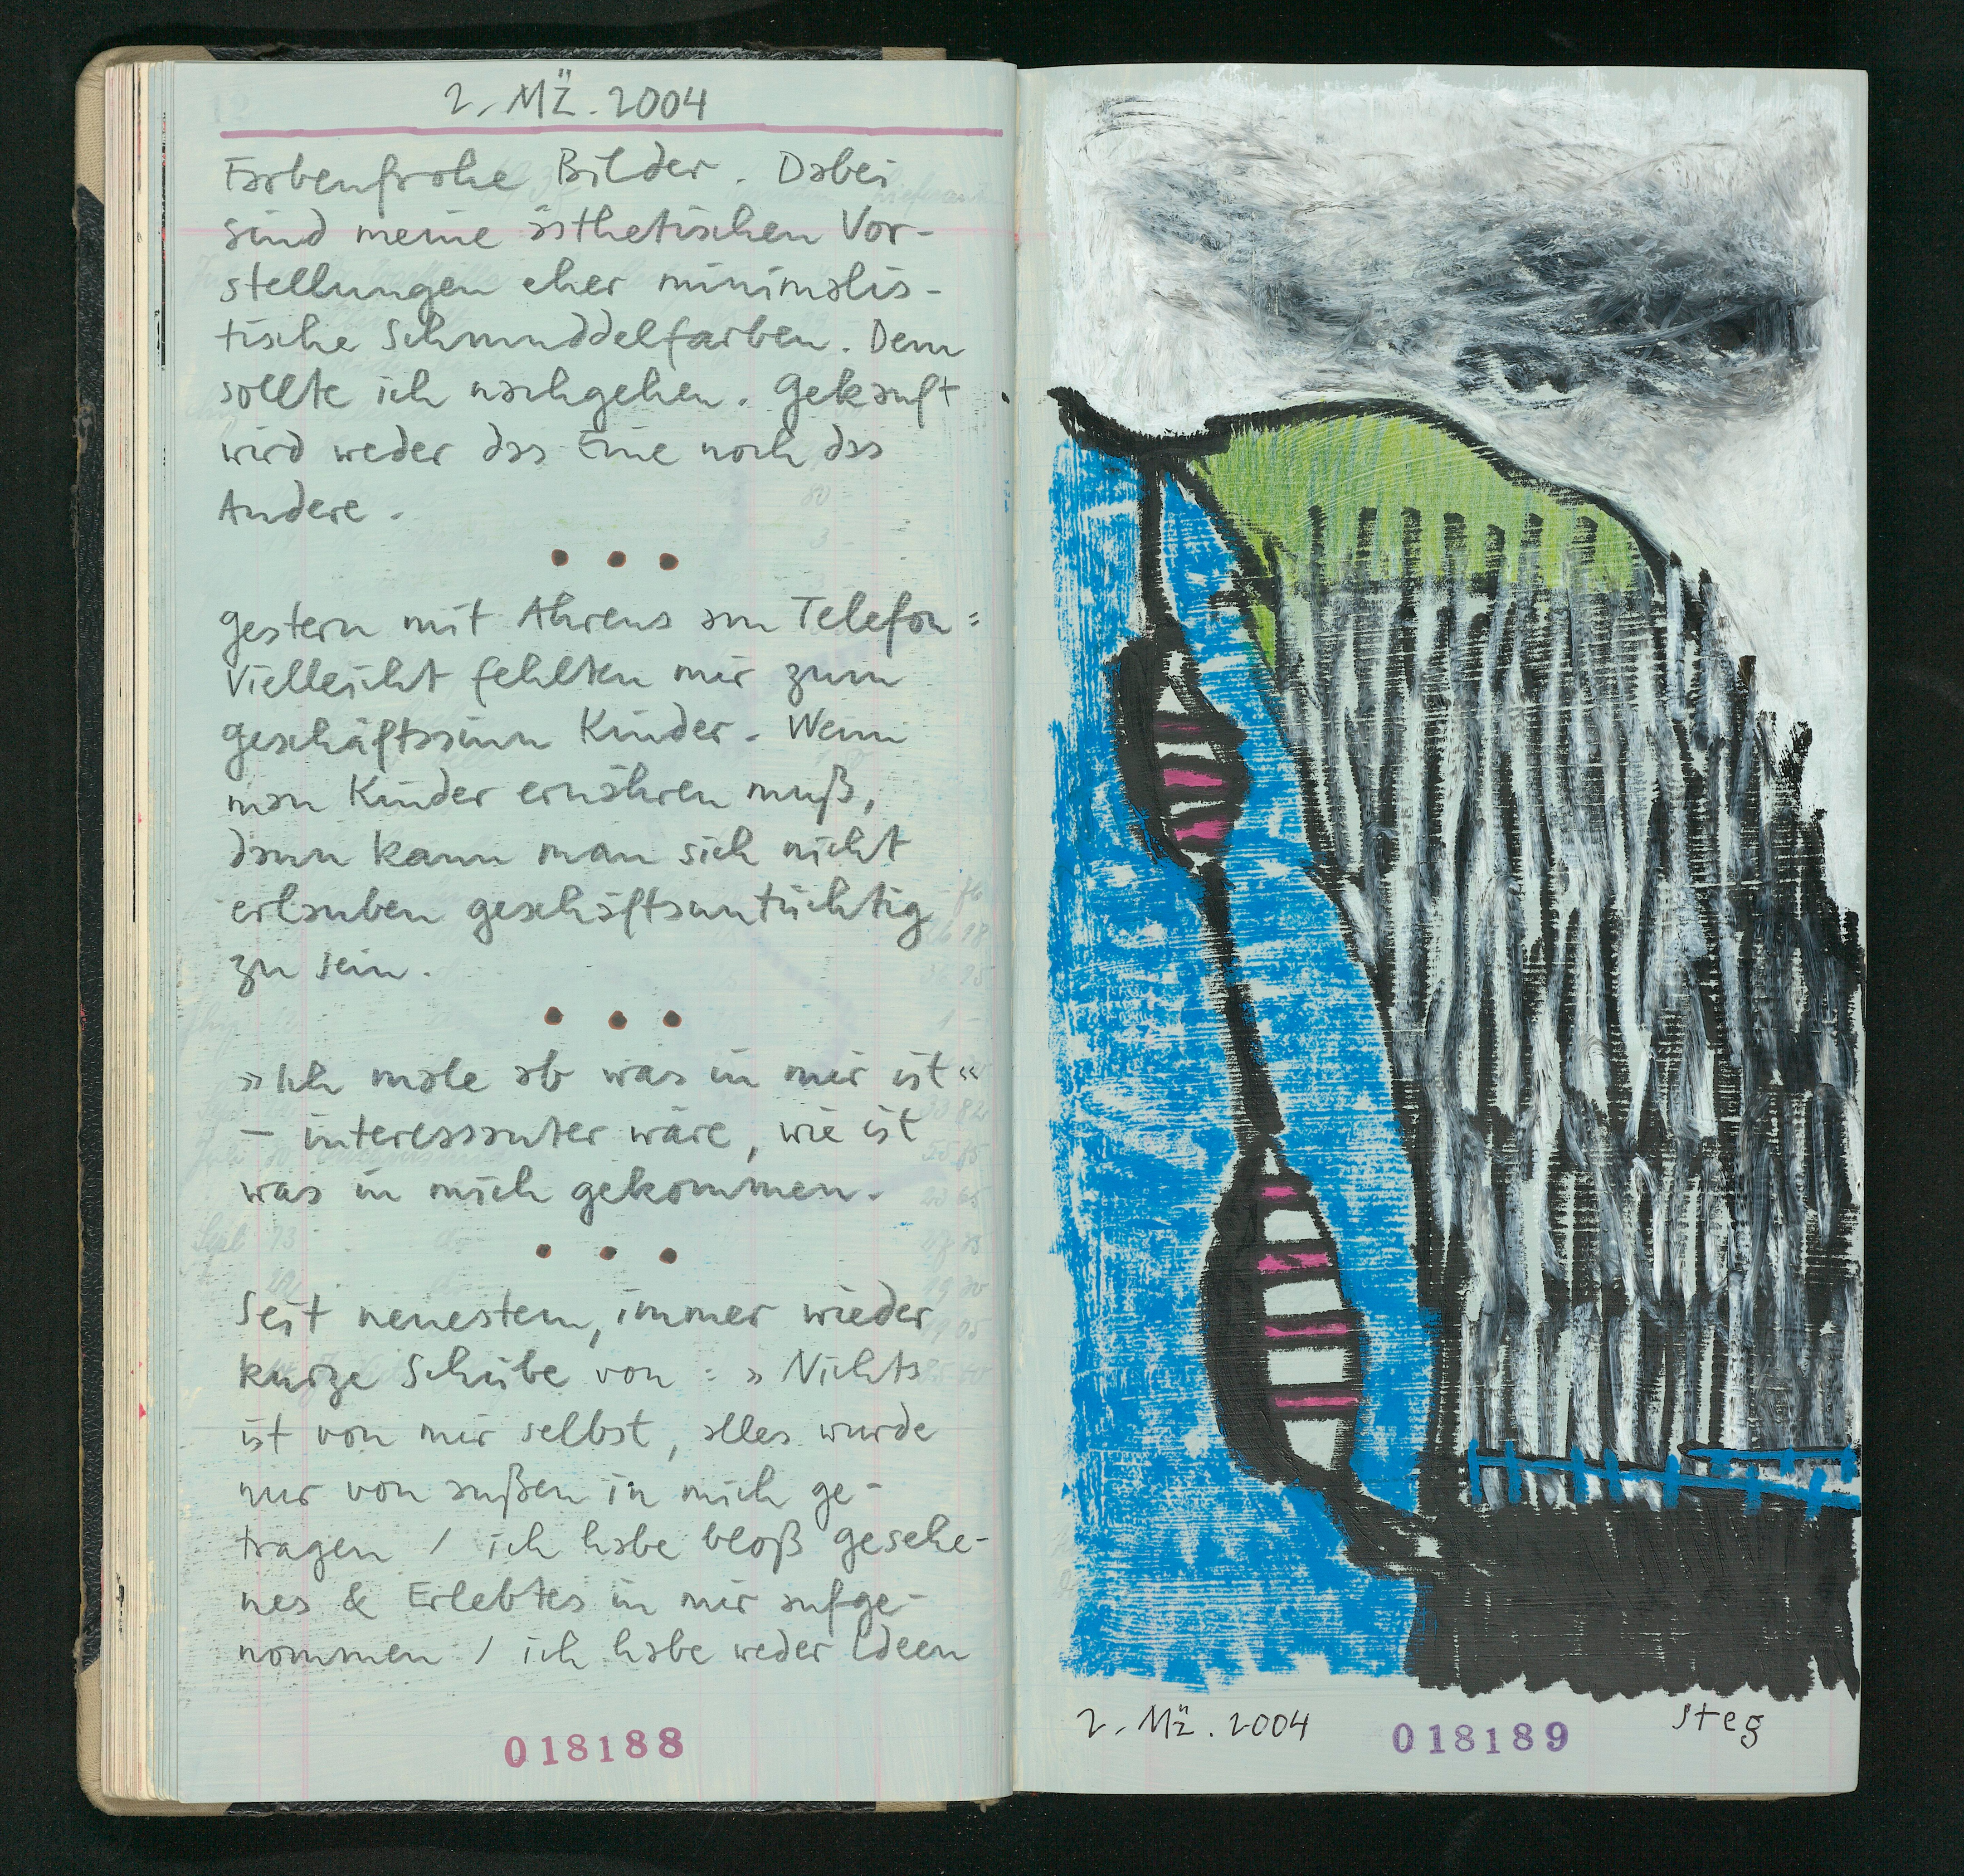 2. Mẍ. 2004
Farbenfrohe Bilder. Dabei
sind meine ästhetischen Vor-
stellungen eher minimalis-
tische Schmuddelfarben. Dem
sollte ich nachgehen. Gekauft
wird weder das Eine noch das
Andere.
• • •
Gestern mit Ahrens am Telefon:
Vielleicht fehlten mir zum
Geschäftssinn Kinder. Wenn
man Kinder ernähren muß,
dann kann man sich nicht
erlauben geschäftsuntüchtig
zu sein.
• • •
»Ich male ab was in mir ist«
– interessanter wäre, wie ist
was in mich gekommen.
• • •
Seit neuestem, immer wieder
kurze Schübe von: »Nichts
ist von mir selbst, alles wurde
nur von außen in mich ge-
tragen / ich habe bloß gesehe-
nes & Erlebtes in mir aufge-
nommen / ich habe weder Ideen
018188
2. Mẍ. 2004
018189
Steg